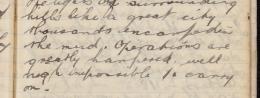 surrounding
hills like a great city
thousands encamped in
the mud. Operations are
greatly hampered, well
nigh impossible to carry
on.